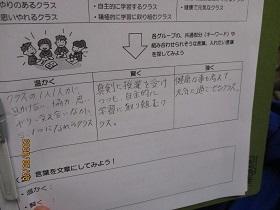 やりのあるクラス
思いやれるクラス
・自主的に学習する
・積極的に学習に取り組むクラス
・健康で元気なクラス
各グループの、共通部分（キーワード）や
組み合わせられそうな言葉、入れたい言葉
を探してみよう
温かく
賢く
強く
クラスの1人1人が、
思いやり、支え合いながら、
1つになれるクラス
真剣に授業を受け
つつも、自主的に
学習に取り組むク
ラス。
健康な事も考えて
元気に過ごせるクラス。
言葉を文章にしてみよう！
・温かく
・賢く